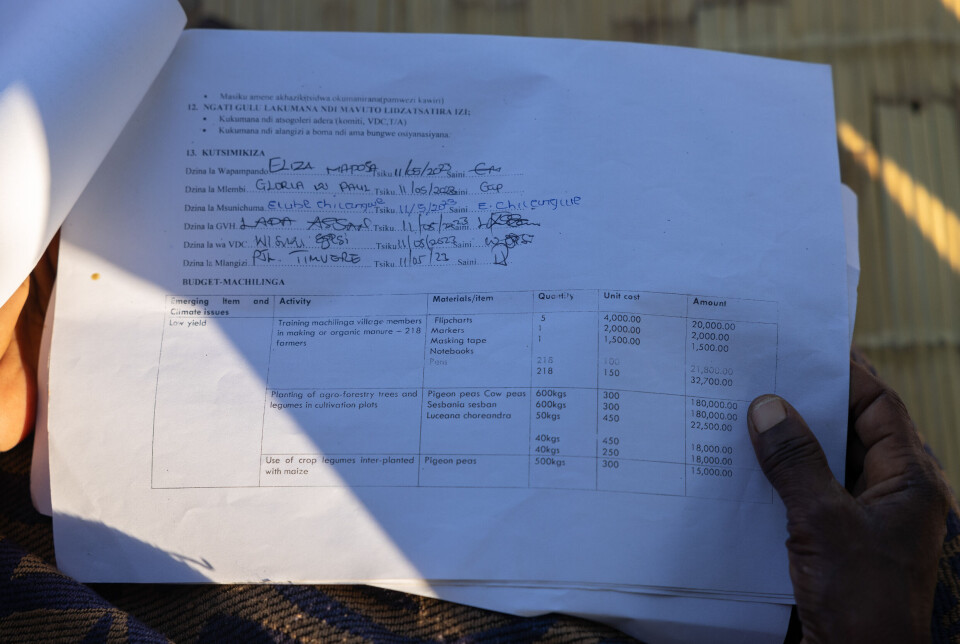 • Masiku amene akhazikitsidwa okumanirana(pamwezi kawiri)
12. NGATI GULU LAKUMANA NDI MAVUTO LIDZATSATIRA IZI:
• Kukumana ndi atsogoleri adera (komiti, VDC,T/A)
• Kukumana ndi alangizi a boma ndi ama bungwe osiyanasiyana.
13. KUTSIMIKIZA
Dzina la Wapampando ELIZA MAPOSA Tsiku 11/05/2023 Saini EM
Dzina la Mlembi GLORIA PAUL Tsiku 11/05/2023 Saini
Dzina la Msunichuma Elube Chilangwe Tsiku 11/5/2023 Saini E. Chilangwe
Dzina la GVH LADA ASSAN Tsiku 11/05/2023 Saini
Dzina la wa VDC Tsiku 11/05/2023 Saini
Dzina la Mlangizi TIMVERE Tsiku 11/05/23 Saini
BUDGET-MACHILINGA
Emerging Item and Climate issues Activity Materials/item Quantity Unit cost Amount
Low yield Training machilinga village members in making or organic manure – 218 farmers
Flipcharts 5 4,000.00 20,000.00
Markers 1 2,000.00 2,000.00
Masking tape 1 1,500.00 1,500.00
Notebooks 218 100 21,800.00
Pens 218 150 32,700.00
Planting of agro-forestry trees and legumes in cultivation plots
Pigeon peas Cow peas 600kgs 300 180,000.00
Sesbania sesban 600kgs 300 180,000.00
Luceana choreandra 50kgs 450 22,500.00
40kgs 450 18,000.00
40kgs 250 18,000.00
Use of crop legumes inter-planted with maize Pigeon peas 500kgs 300 15,000.00